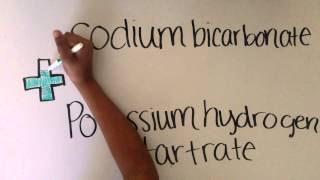 Sodium bicarbonate
+
Potassium hydrogen
tartrate